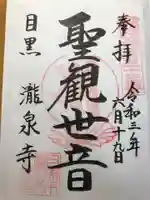 奉拝
令和三年
六月十九日
聖観世音
目黒 瀧泉寺